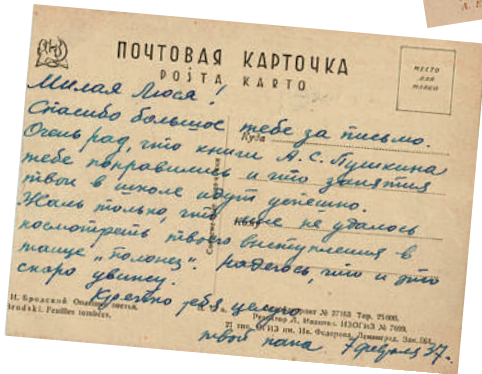 ПОЧТОВАЯ КАРТОЧКА
POŜTA KARTO
МЕСТО
ДЛЯ
МАРКИ
Милая Люся!
Спасибо большое тебе за письмо.
Куда
Очень рад, что книги А.С. Пушкина
тебе понравились и что занятия
твои в школе идут успешно.
Жаль только, что мне не удалось
посмотреть твоего выступления в
танце „полонез“. Надеюсь, что и это
скоро увижу.
Крепко тебя целую
твой папа. 7 февраля 37г.
И. Бродский
Brodski. Feuilles tombées.
№ 27163 Тир. 25000.
Редактор ИЗОГИЗ № 7699.
им. Ив. Федорова, Ленинград, Зак.